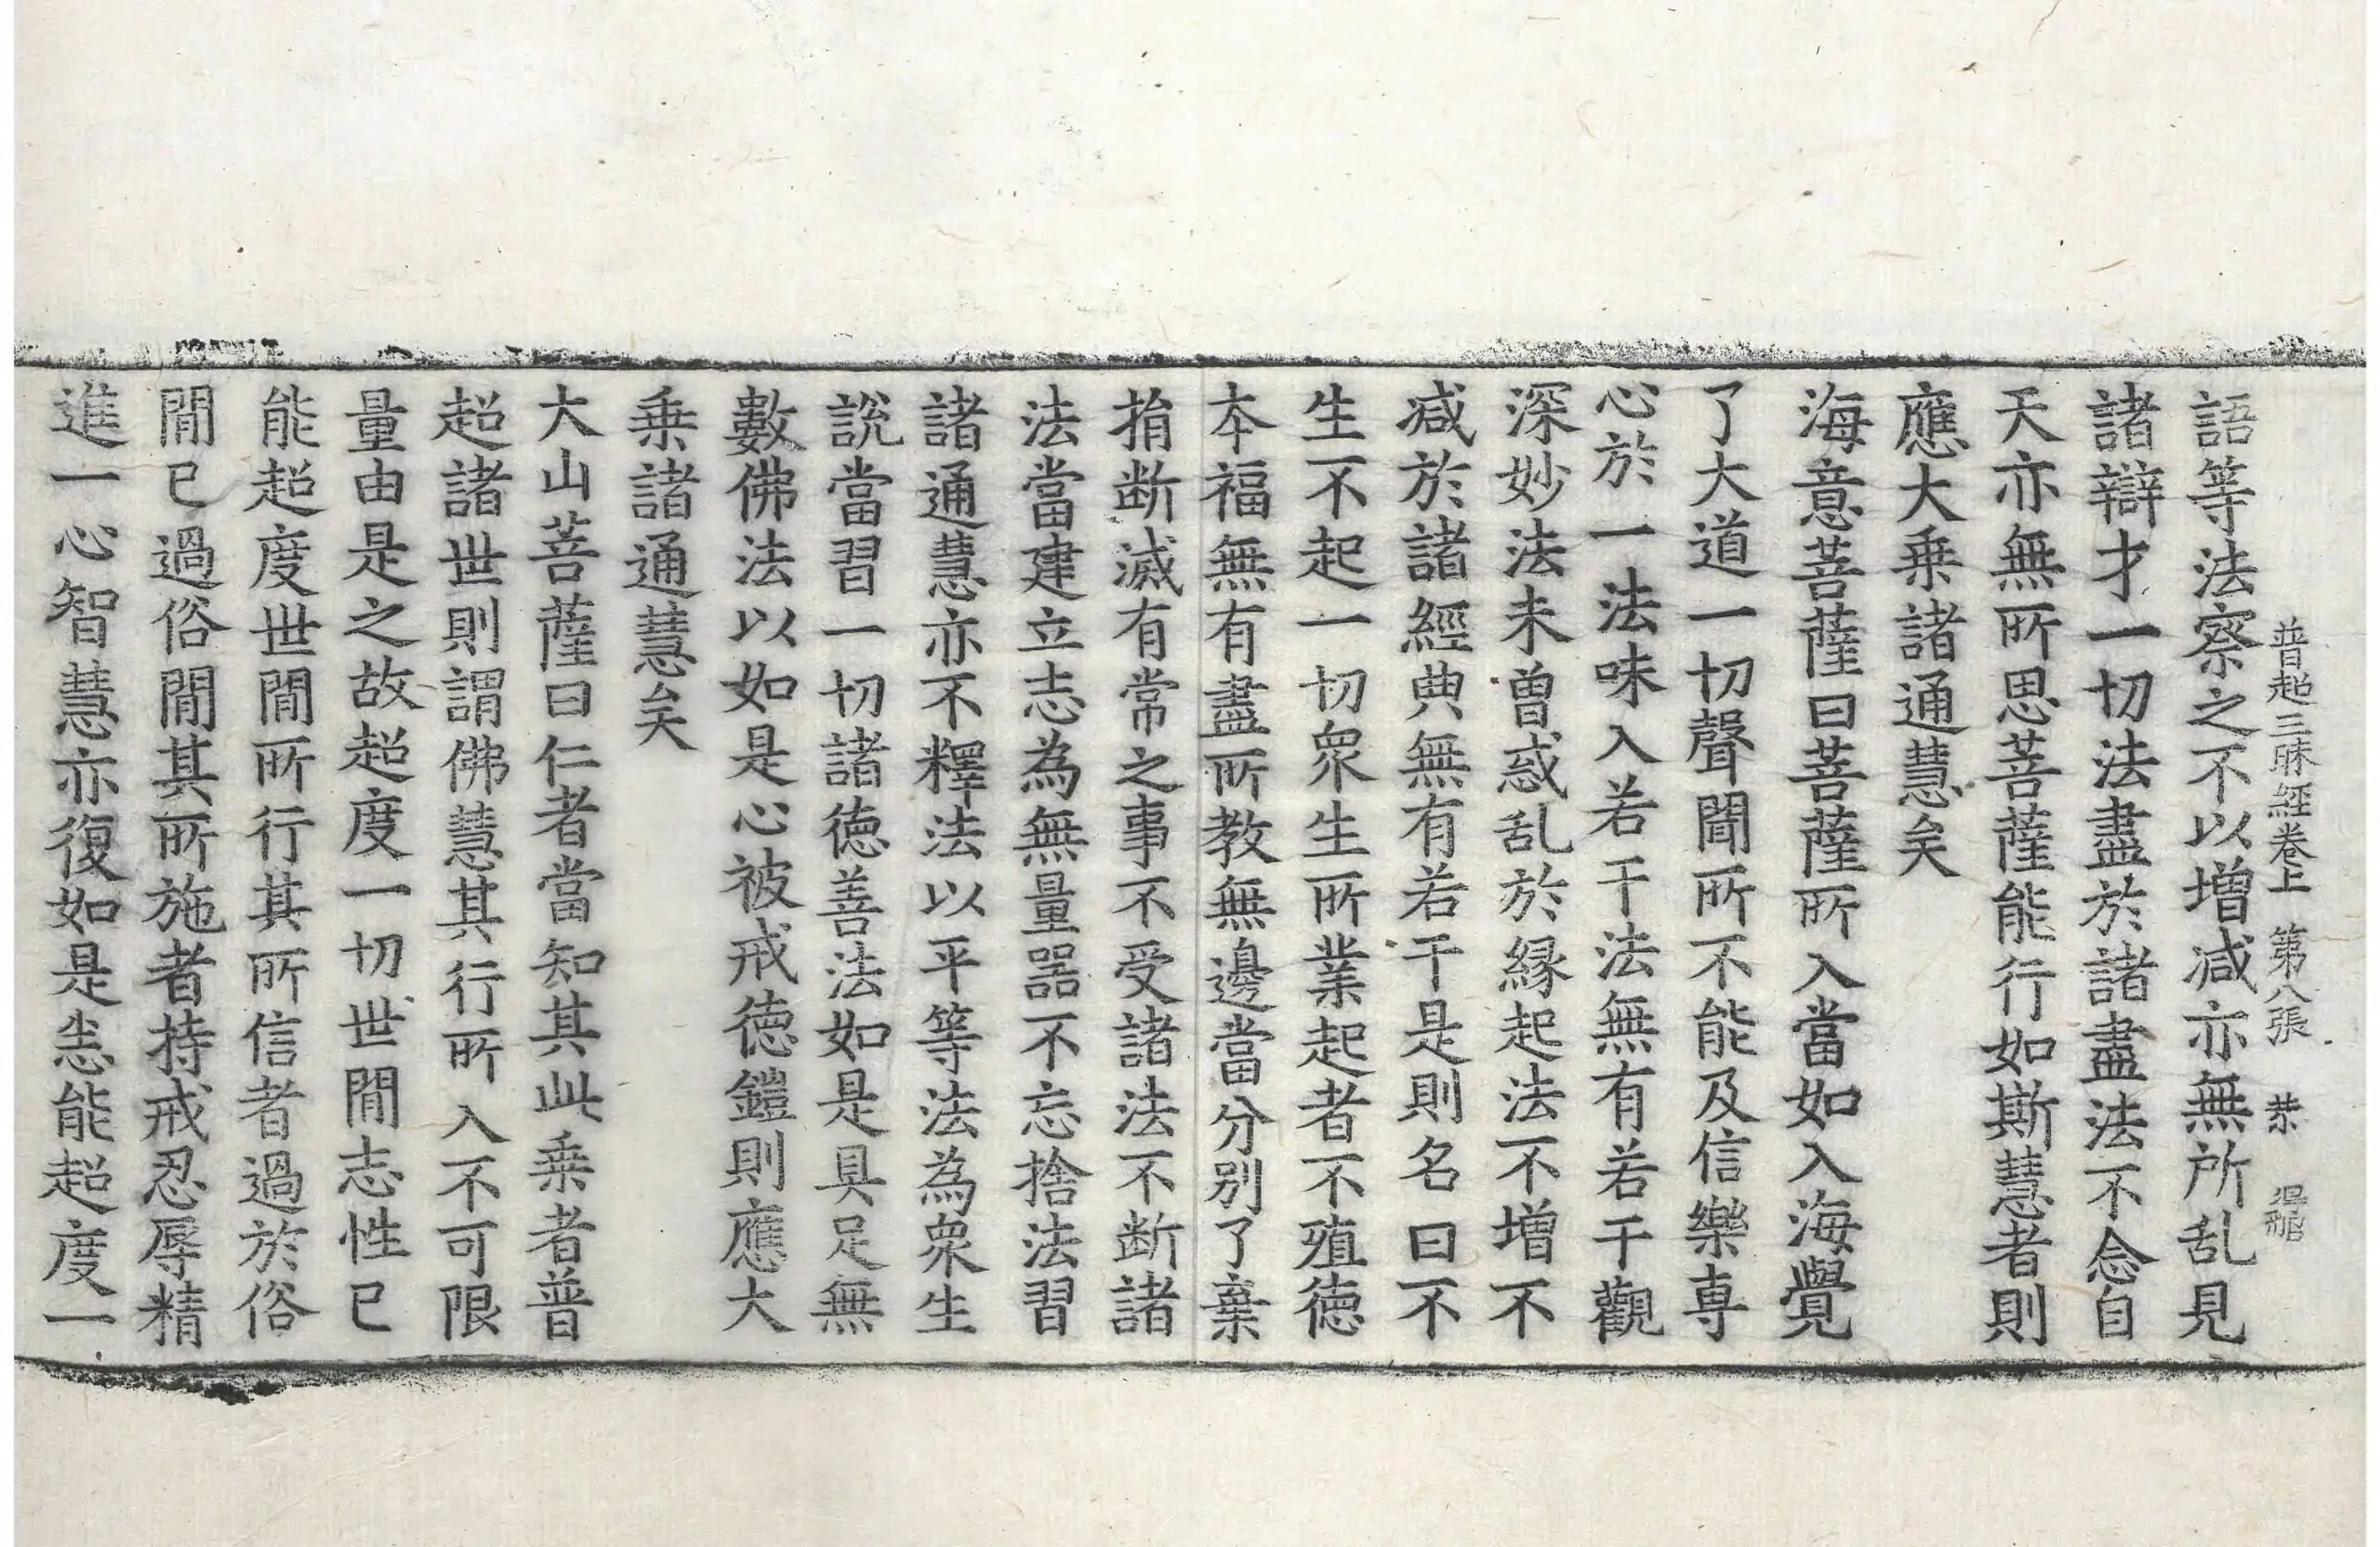 普超三昧経卷上 第八張 恭
語等法察之不以増减亦無所乱見
諸辯才一切法盡於諸盡法不念自
天亦無所思菩薩能行如斯慧者則
應大乗諸通慧矣
海意菩薩曰菩薩所入當如入海覺
了大道一切聲聞所不能及信樂専
心於一法味入若干法無有若干觀
深妙法未曽惑乱於縁起法不増不
减於諸經典無有若干是則名曰不
生不起一切衆生所業起者不殖徳
本福無有盡所教無邊當分別了棄
捐断滅有常之事不受諸法不断諸
法當建立志為無量器不忘捨法習
諸通慧亦不釋法以平等法為衆生
說當習一切諸徳善法如是具足無
數佛法以如是心被戒徳鎧則應大
乗諸通慧矣
大山菩薩曰仁者當知其此乗者普
超諸世則謂佛慧其行所入不可限
量由是之故超度一切世間志性已
能超度世間所行其所信者過於俗
間已過俗間其所施者持戒忍辱精
進一心智慧亦復如是悉能超度一